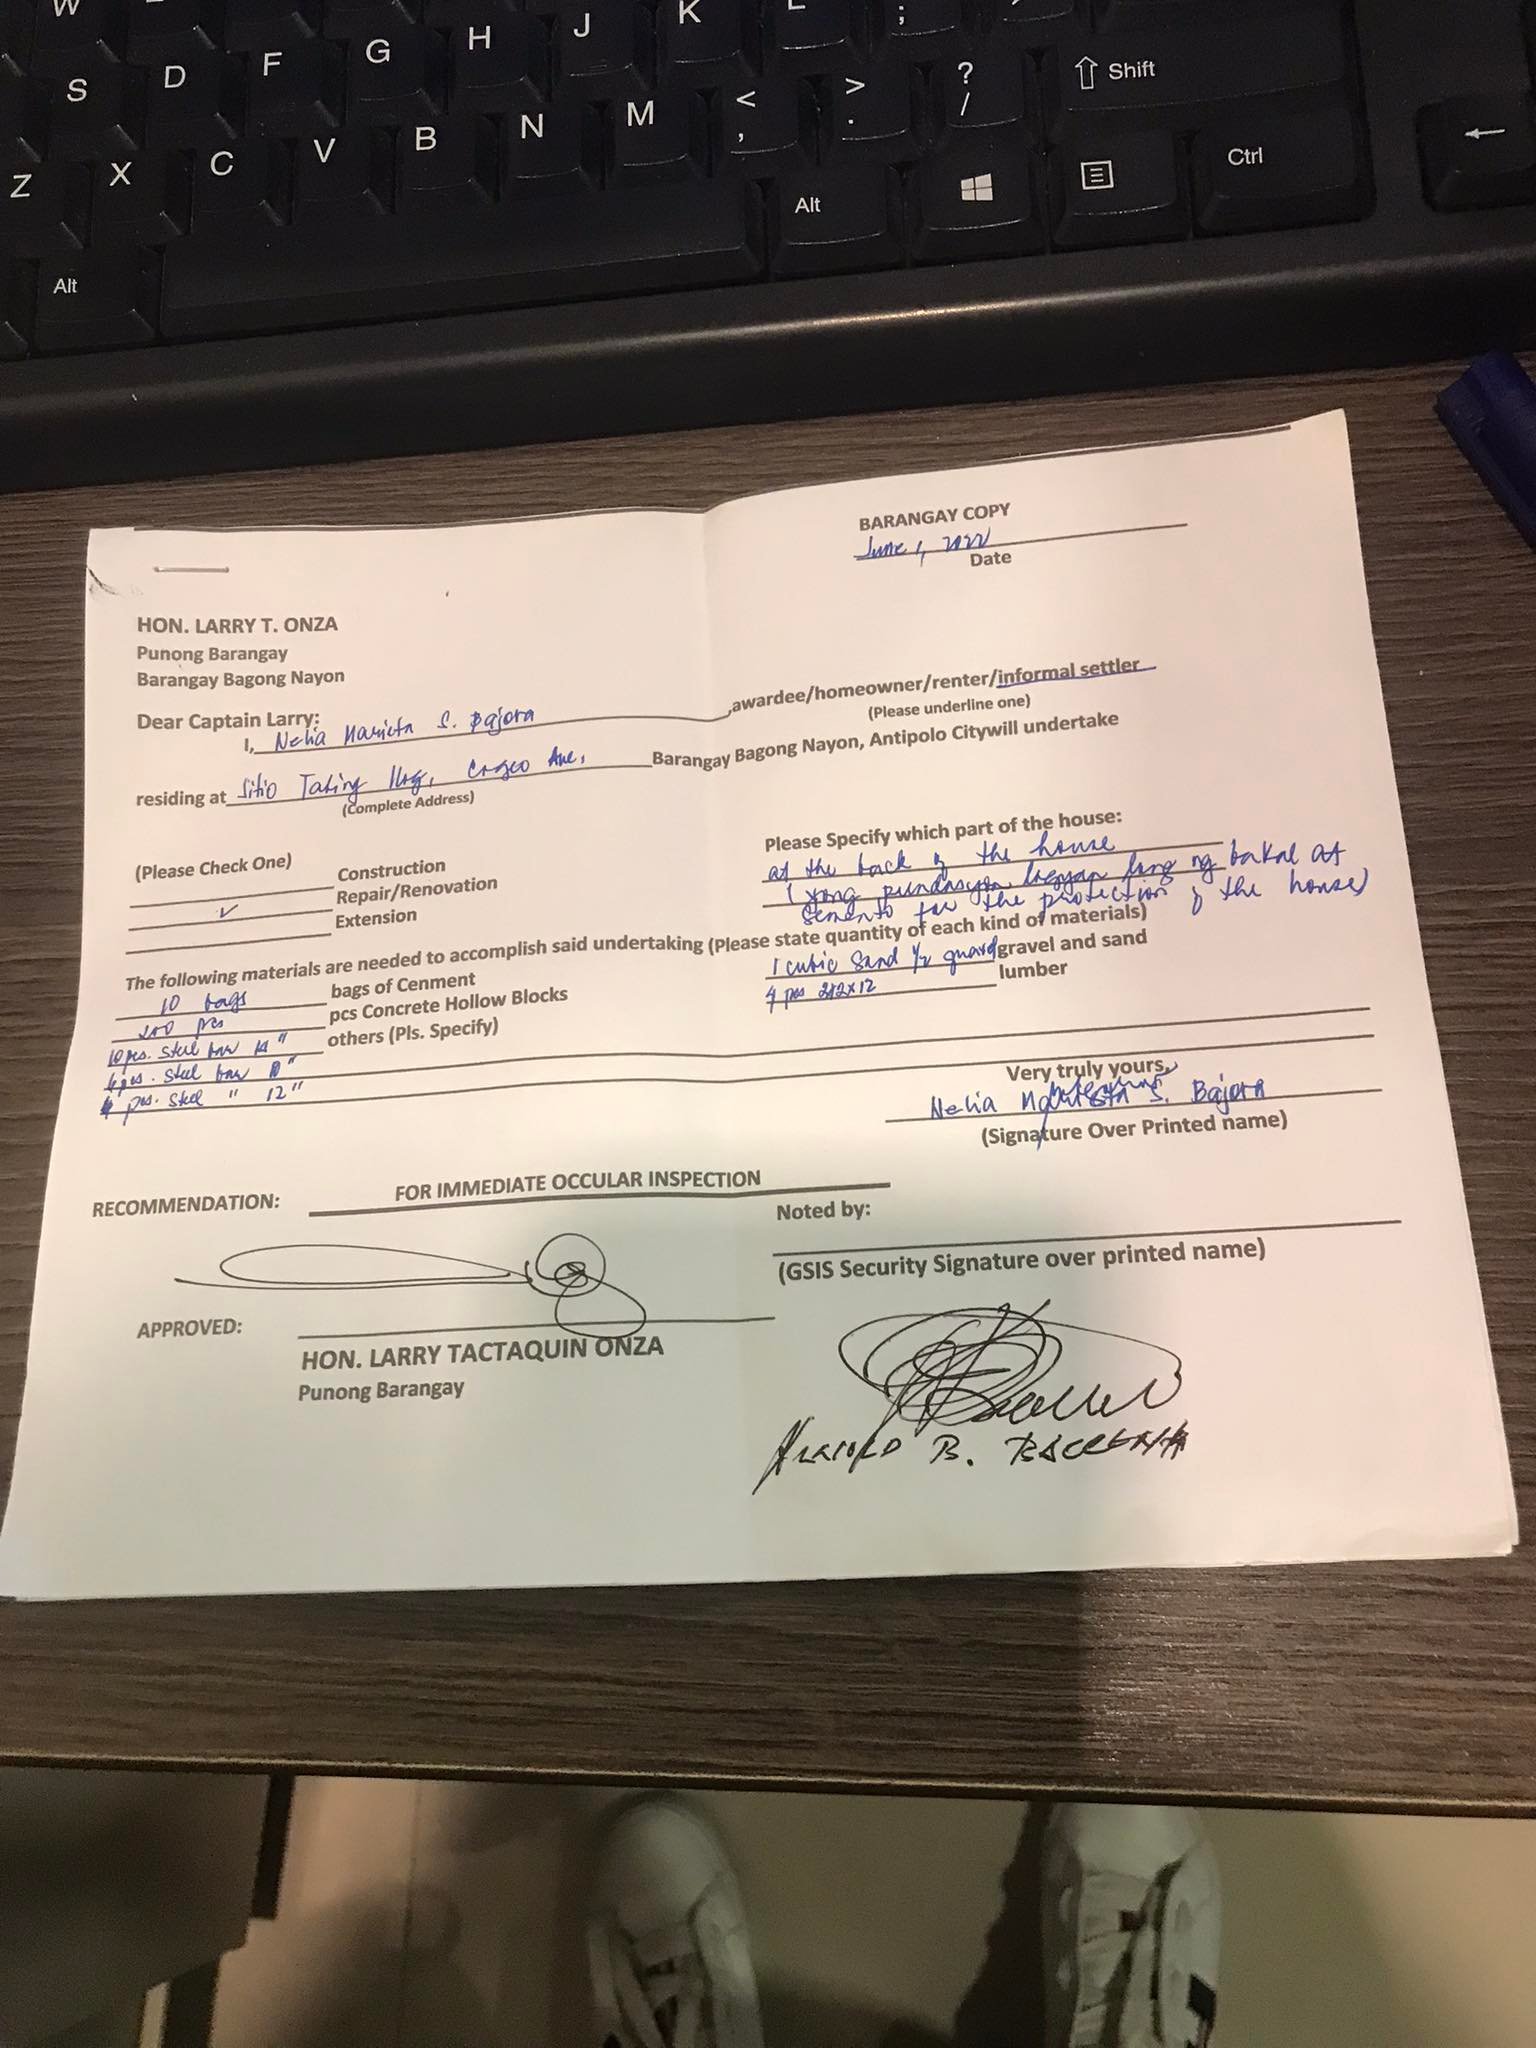 W
J K L ;
S D F G H
Z X C V B N M < , > . ? / Shift
Alt Alt Ctrl
BARANGAY COPY
June 1, 2022
Date
HON. LARRY T. ONZA
Punong Barangay
Barangay Bagong Nayon
Dear Captain Larry:
I, Nelia Marieta S. Bajora ,awardee/homeowner/renter/informal settler
(Please underline one)
residing at Sitio Ilog, Ave, Barangay Bagong Nayon, Antipolo Citywill undertake
(Complete Address)
(Please Check One)
Construction
✓ Repair/Renovation
Extension
Please Specify which part of the house:
at the back of the house
(yong pundasyon lagyan lang ng bakal at
semento for the protection of the house)
The following materials are needed to accomplish said undertaking (Please state quantity of each kind of materials)
10 bags bags of Cenment
200 pcs pcs Concrete Hollow Blocks
10 pcs. steel bar others (Pls. Specify)
pcs. steel bar
pcs. steel " 12"
1 cubic sand 1/2 gravel and sand
4 pcs 2x2x12 lumber
Very truly yours,
Nelia Marieta S. Bajora
(Signature Over Printed name)
RECOMMENDATION: FOR IMMEDIATE OCCULAR INSPECTION
Noted by:
(GSIS Security Signature over printed name)
APPROVED:
HON. LARRY TACTAQUIN ONZA
Punong Barangay
B.